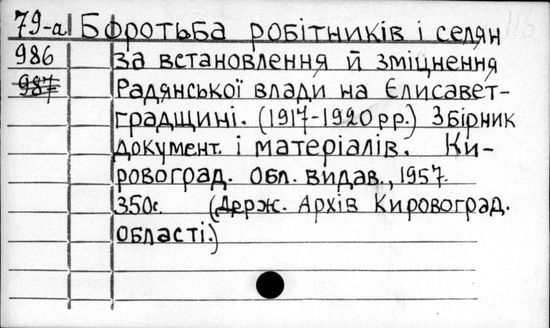 79-а Боротьба робітників і селян
986 за встановлення й зміцнення
987 Радянської влади на Єлисавет-
градщині. (1917-1920 рр.) Збірник
документ. і матеріалів. Ки-
ровоград. обл. видав., 1957.
350с. (Держ. Архів Кировоград.
області.)